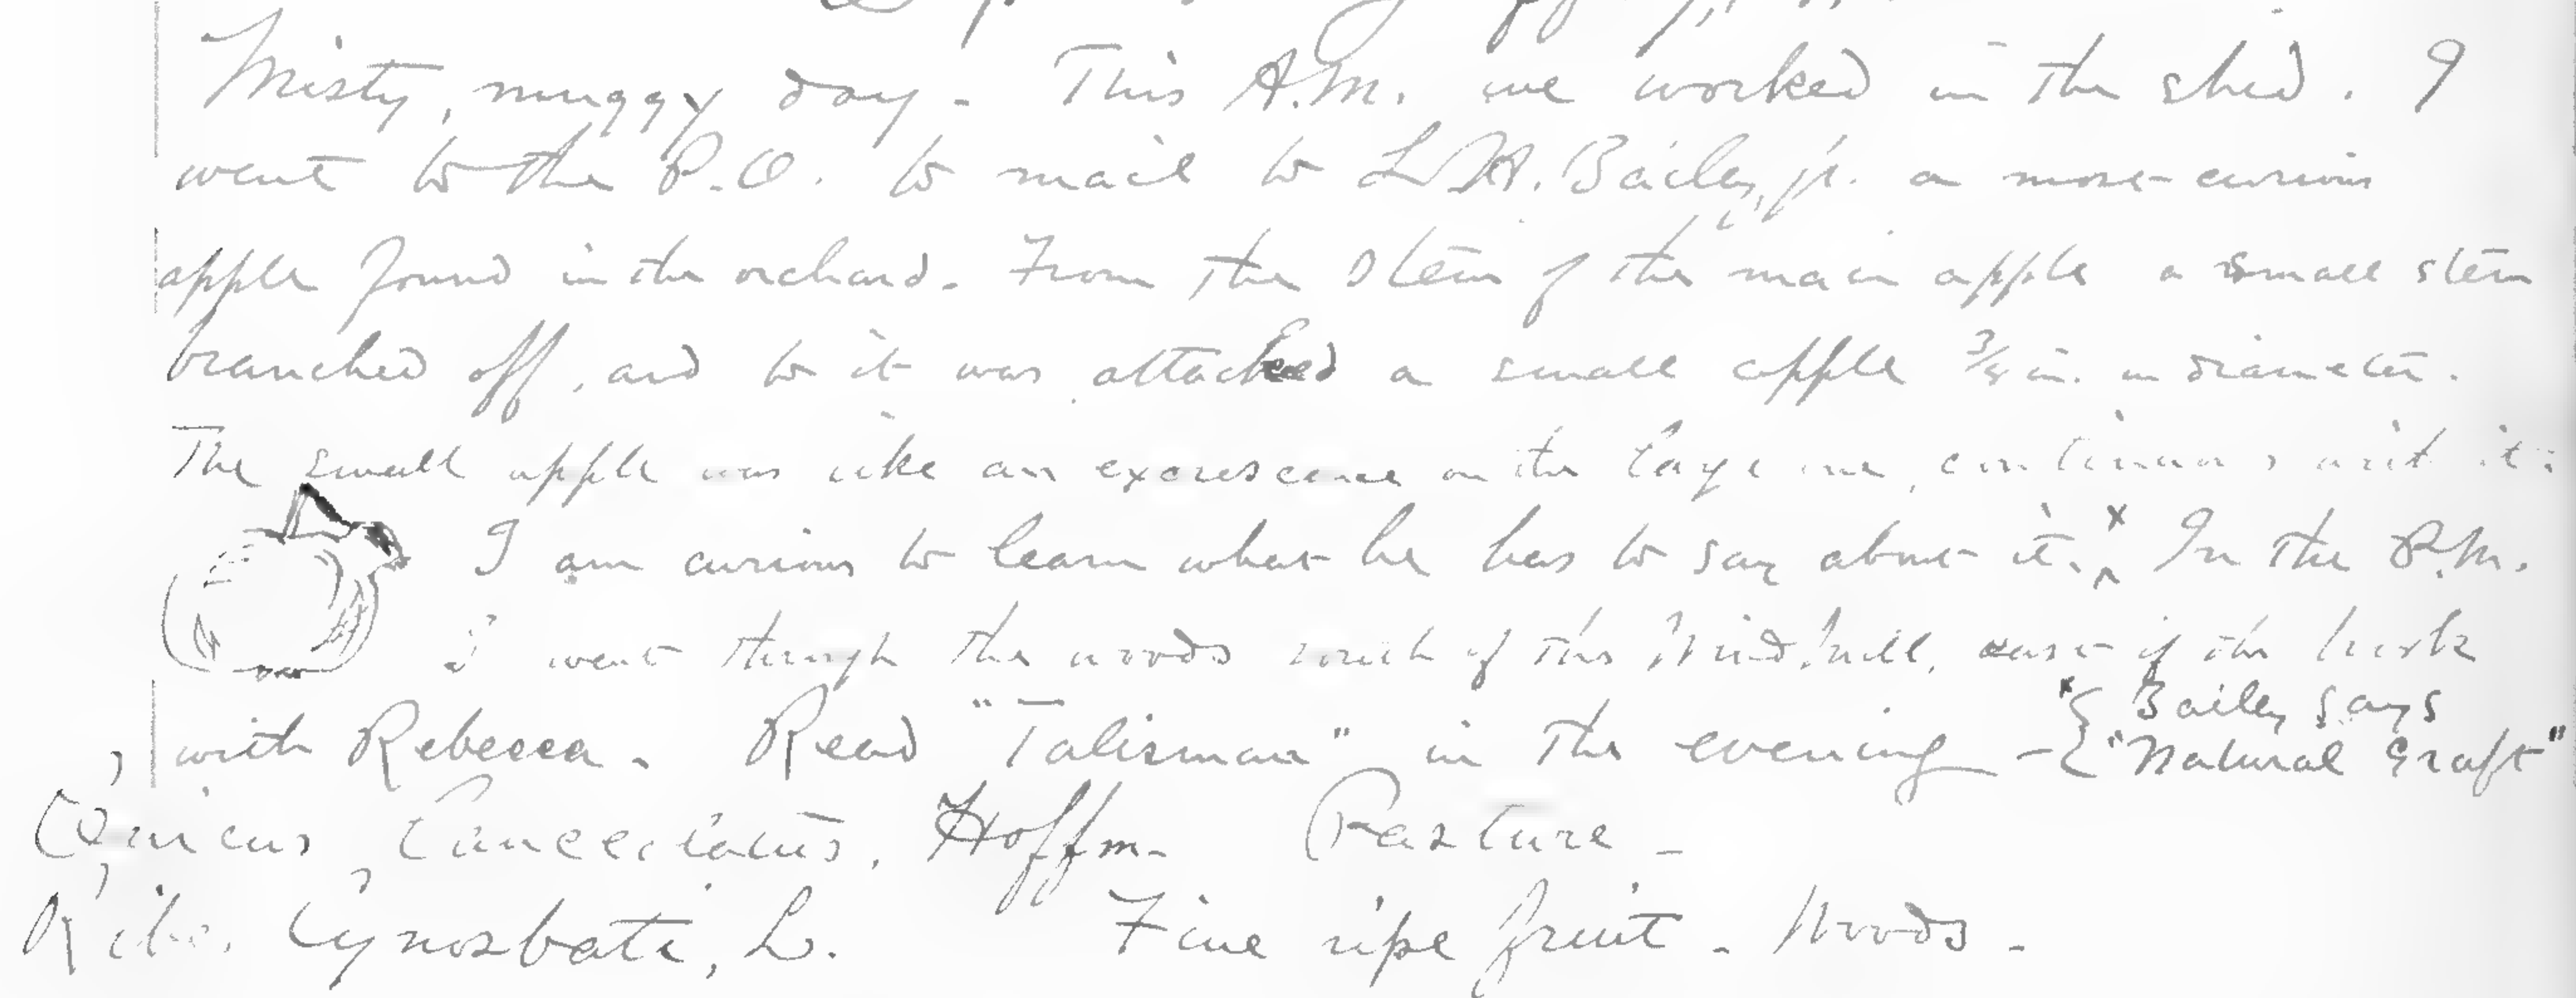 Misty, muggy day - This A.M. we worked in the shed. I
went to the P.O. to mail to L.H. Bailey, jr. a most curious
apple found in the orchard. From the stem of the main apple a small stem
branched off, and to it was attached a small apple 3/4 in. in diameter.
The small apple was like an excrescence on the large one, continuous with it.
I am curious to learn what he has to say about it. x In the P.M.
I went through the woods south of the Wind Mill, east of the
with Rebecca. Read "Talisman" in the evening -
x { Bailey says
"Natural Graft"
Cnicus lanceolatus, Hoffm. Pasture -
Ribes Cynosbati, L. Fine ripe fruit - Woods -